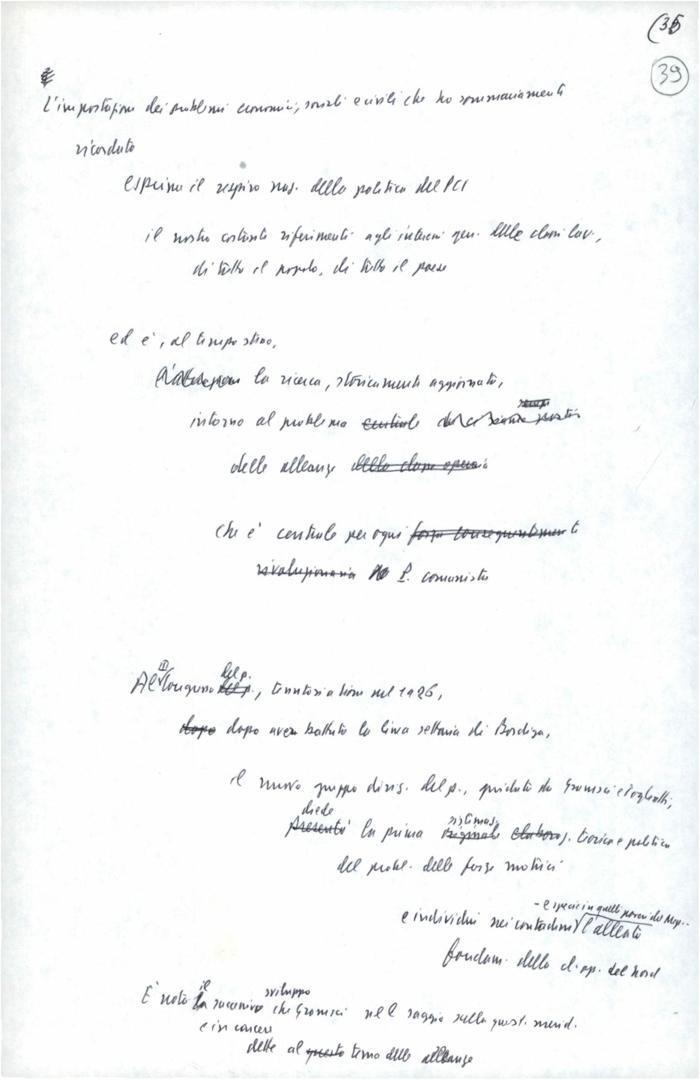 (35
39
L'impostazione dei problemi economici, sociali e civili che ho sommariamente
ricordato
esprime il respiro naz. della politica del PCI
il nostro costante riferimento agli interessi gen. delle classi lav.,
di tutto il popolo, di tutto il paese
ed è, al tempo stesso,
la ricerca, storicamente aggiornata,
intorno al problema centrale
delle alleanze della classe operaia
che è centrale per ogni forza conseguentemente
rivoluzionaria P. comunista
Al III Congresso del p., tenutosi a Lione nel 1926,
dopo dopo aver battuto la linea settaria di Bordiga,
il nuovo gruppo dirig. del p., guidato da Gramsci e Togliatti,
diede sistemaz.
Presentò la prima originale elaboraz. teorica e politica
del probl. delle forze motrici
- e specie in quelli poveri del Mezz.
e individuò nei contadini l'alleato
fondam. della cl. op. del Nord
il sviluppo
È noto la successivo che Gramsci nel saggio sulla quest. merid.
e in carcere
dette al questo tema delle alleanze